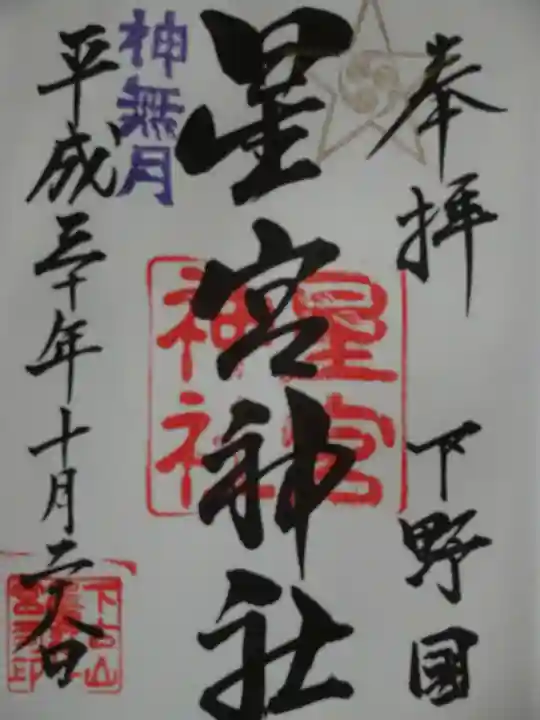 奉拝 下野国
星宮神社
星宮
神社
神無月
平成三十年十月二十八日